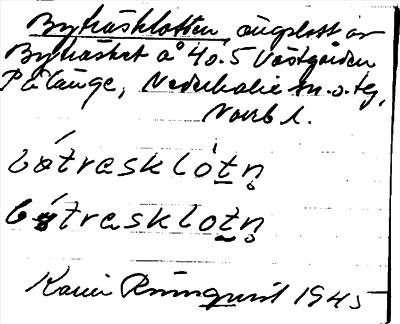 Byträsklotten, ängslott av
Byträsket å 4 o. 5 Västgården
Pålänge, Nederkalix s:n o. tg,
Norrb l.
bótrasklòtn̥
bótrasklotn̥
Karin Rönnqvist 1945